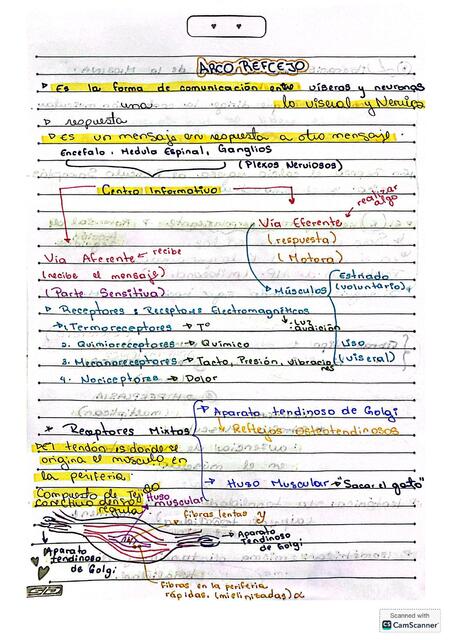 ARCO REFLEJO
▷ Es la forma de comunicación entre víseras y neuronas
una lo viseral y Nervios
▷ respuesta
▷ Es un mensaje en respuesta a otro mensaje.
Encéfalo, Medula Espinal, Ganglios
(Plexos Nerviosos)
Centro Informativo
realizar algo
Vía Eferente
(respuesta)
(Motora)
Vía Aferente ← recibe
(recibe el mensaje)
(Parte Sensitiva)
Músculos
Estriado
(voluntario)
Liso
(viseral)
▷ Receptores: Receptores Electromagnéticos
↓ luz
audición
1. Termoreceptores → T°
2. Quimioreceptores → Químico
3. Mecanoreceptores → Tacto, Presión, vibraciones
4. Nociceptores → Dolor
* Receptores Mixtos
→ Aparato tendinoso de Golgi
↳ Reflejos Osteotendinosos
→ Huso Muscular → "Sacar el gato"
El tendón es donde se
origina el musculo en
la periferia
Compuesto de Tejido
conectivo denso
regular
Huso
muscular
fibras lentas y
Aparato
tendinoso
de Golgi
Aparato
Tendinoso
de Golgi
fibras en la periferia
rápidas. (mielinizadas) α
Scanned with
CS CamScanner